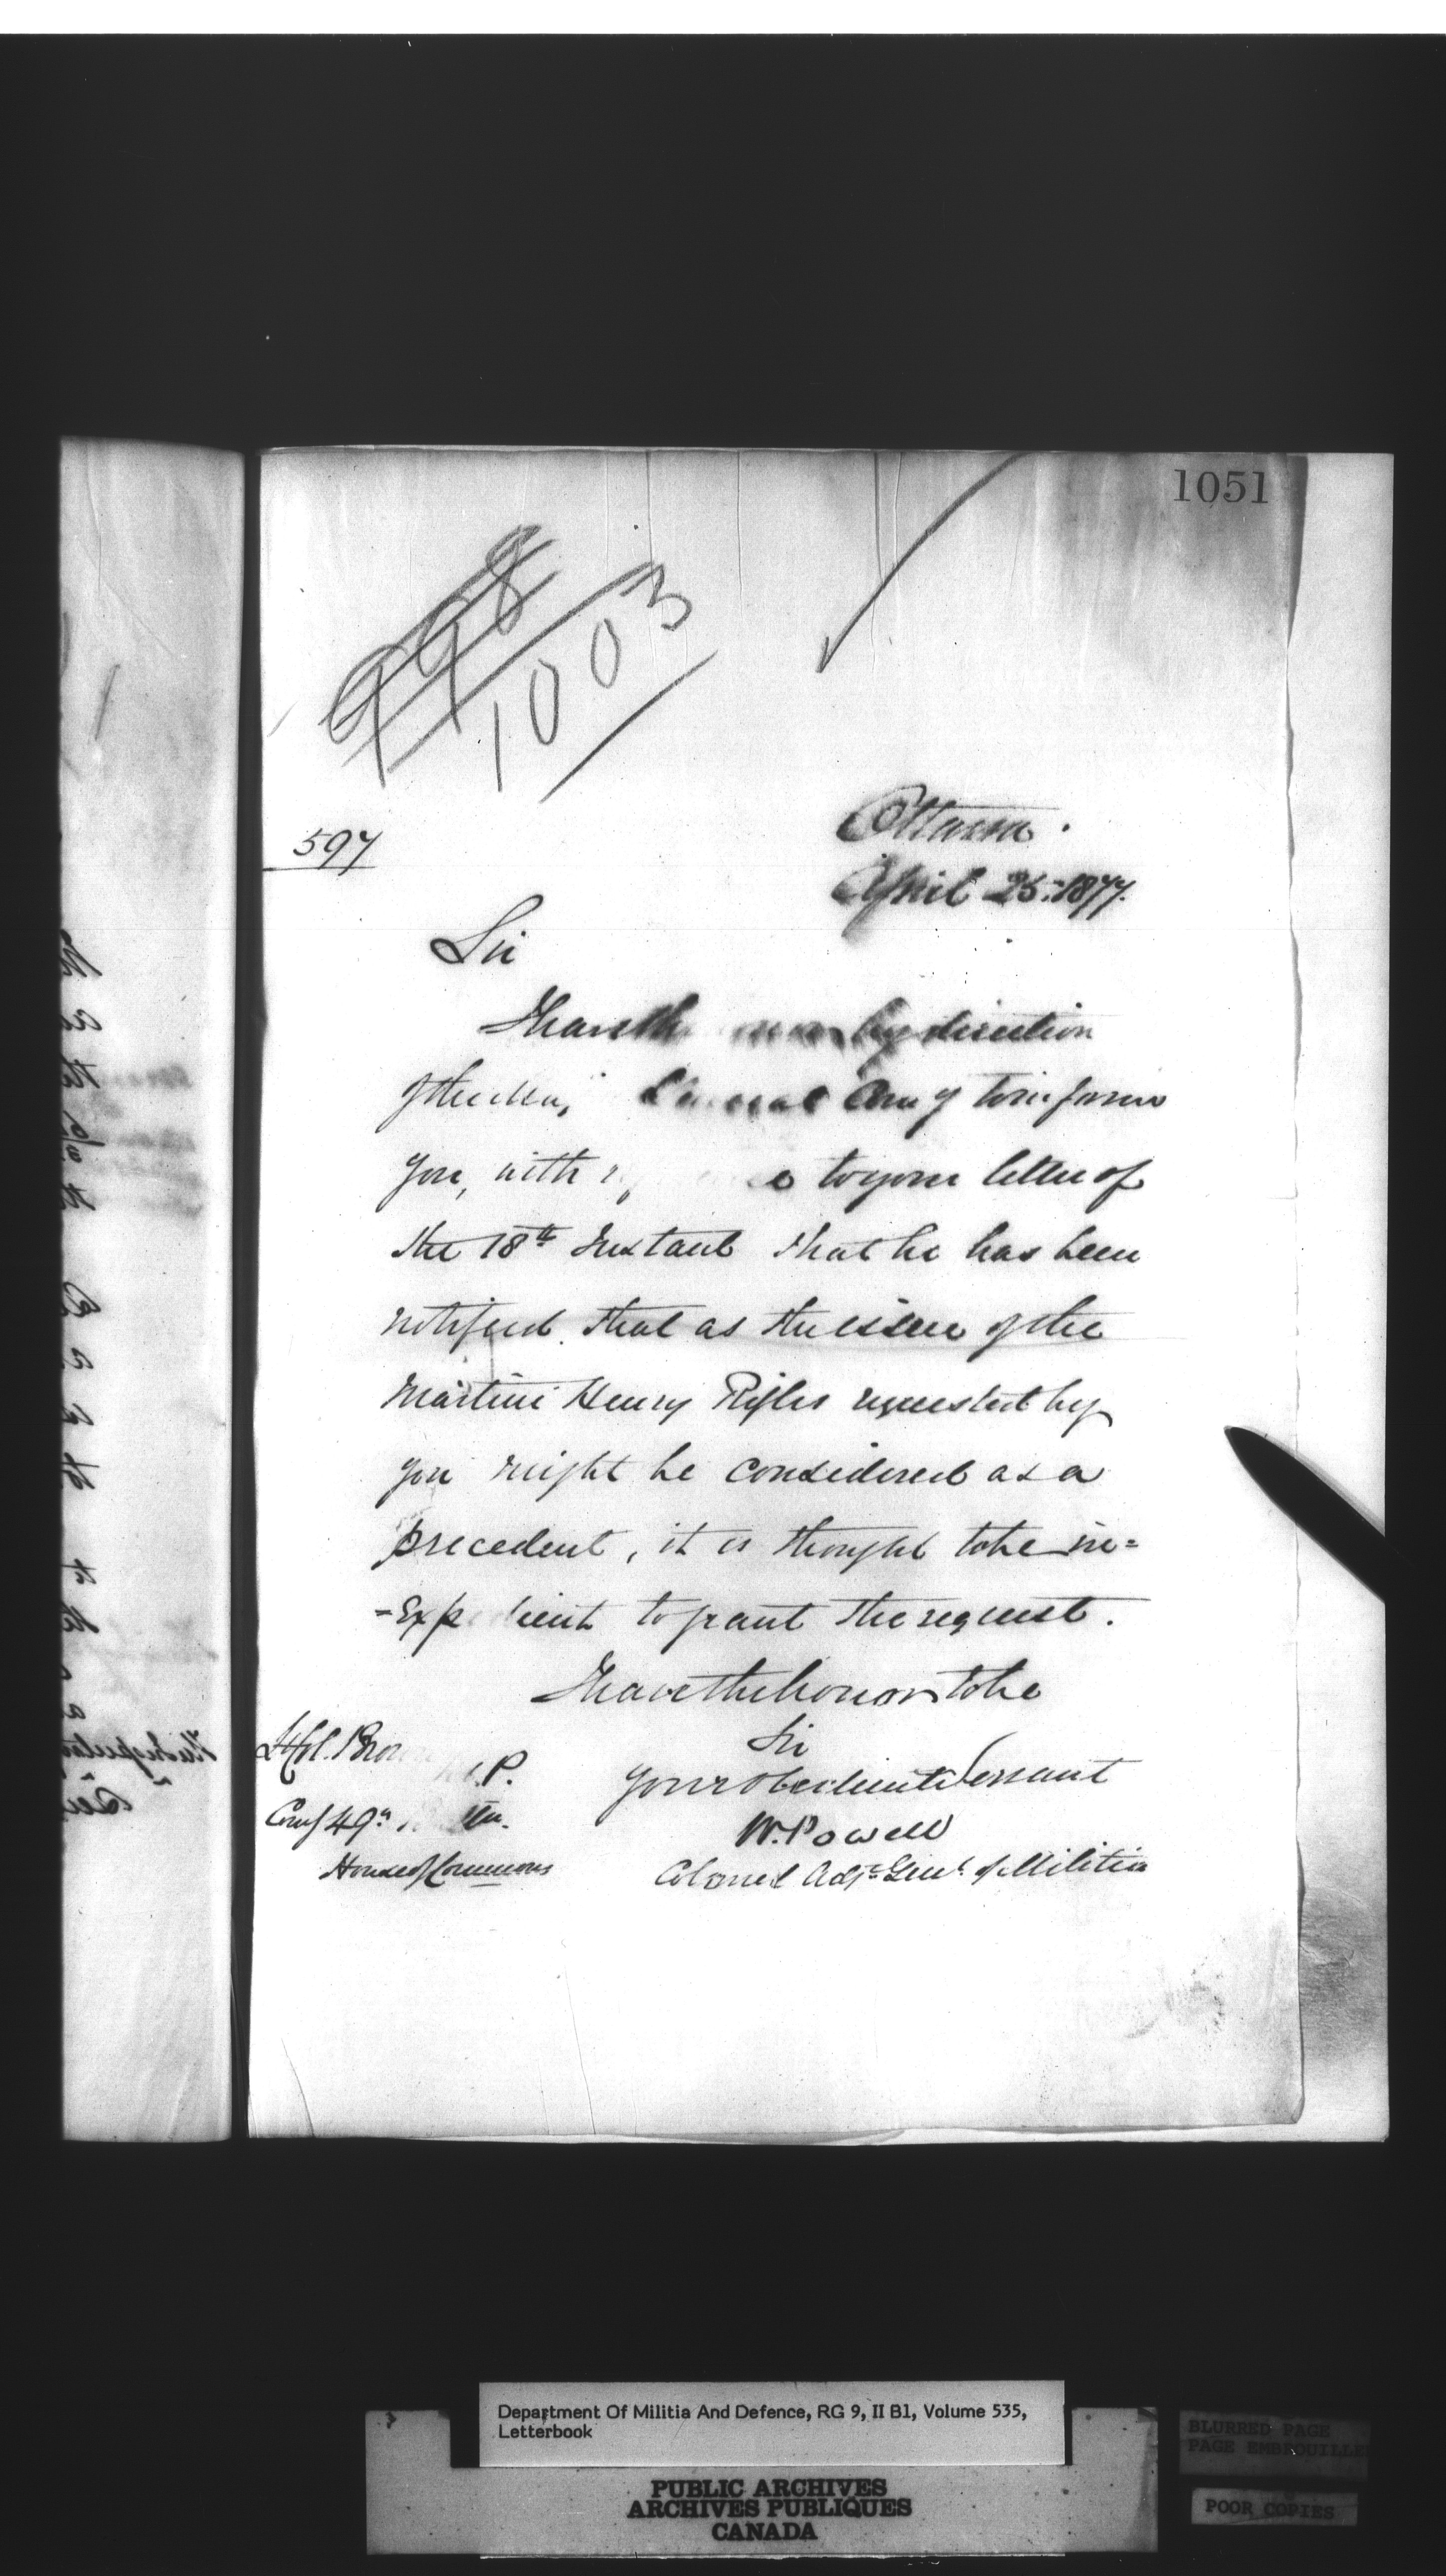 1051
998
1003
597
Ottawa.
April 25. 1877.
Sir
I have the by direction
of the General Com'g to inform
you, with to your letter of
the 18th Instant that he has been
notified that as the issue of the
Martini Henry Rifles requested by
you might be considered as a
precedent, it is thought to be in=
=Expedient to grant the request.
I have the honor to be
Sir
Your Obedient Servant
W. Powell
Colonel Adjt. Genl. of Militia
Lt Col. Brown .P.
Com'g 49th
House of Commons
Department Of Militia And Defence, RG 9, II B1, Volume 535,
Letterbook
PUBLIC ARCHIVES
ARCHIVES PUBLIQUES
CANADA
BLURRED PAGE
PAGE EMBROUILLEE
POOR COPIES